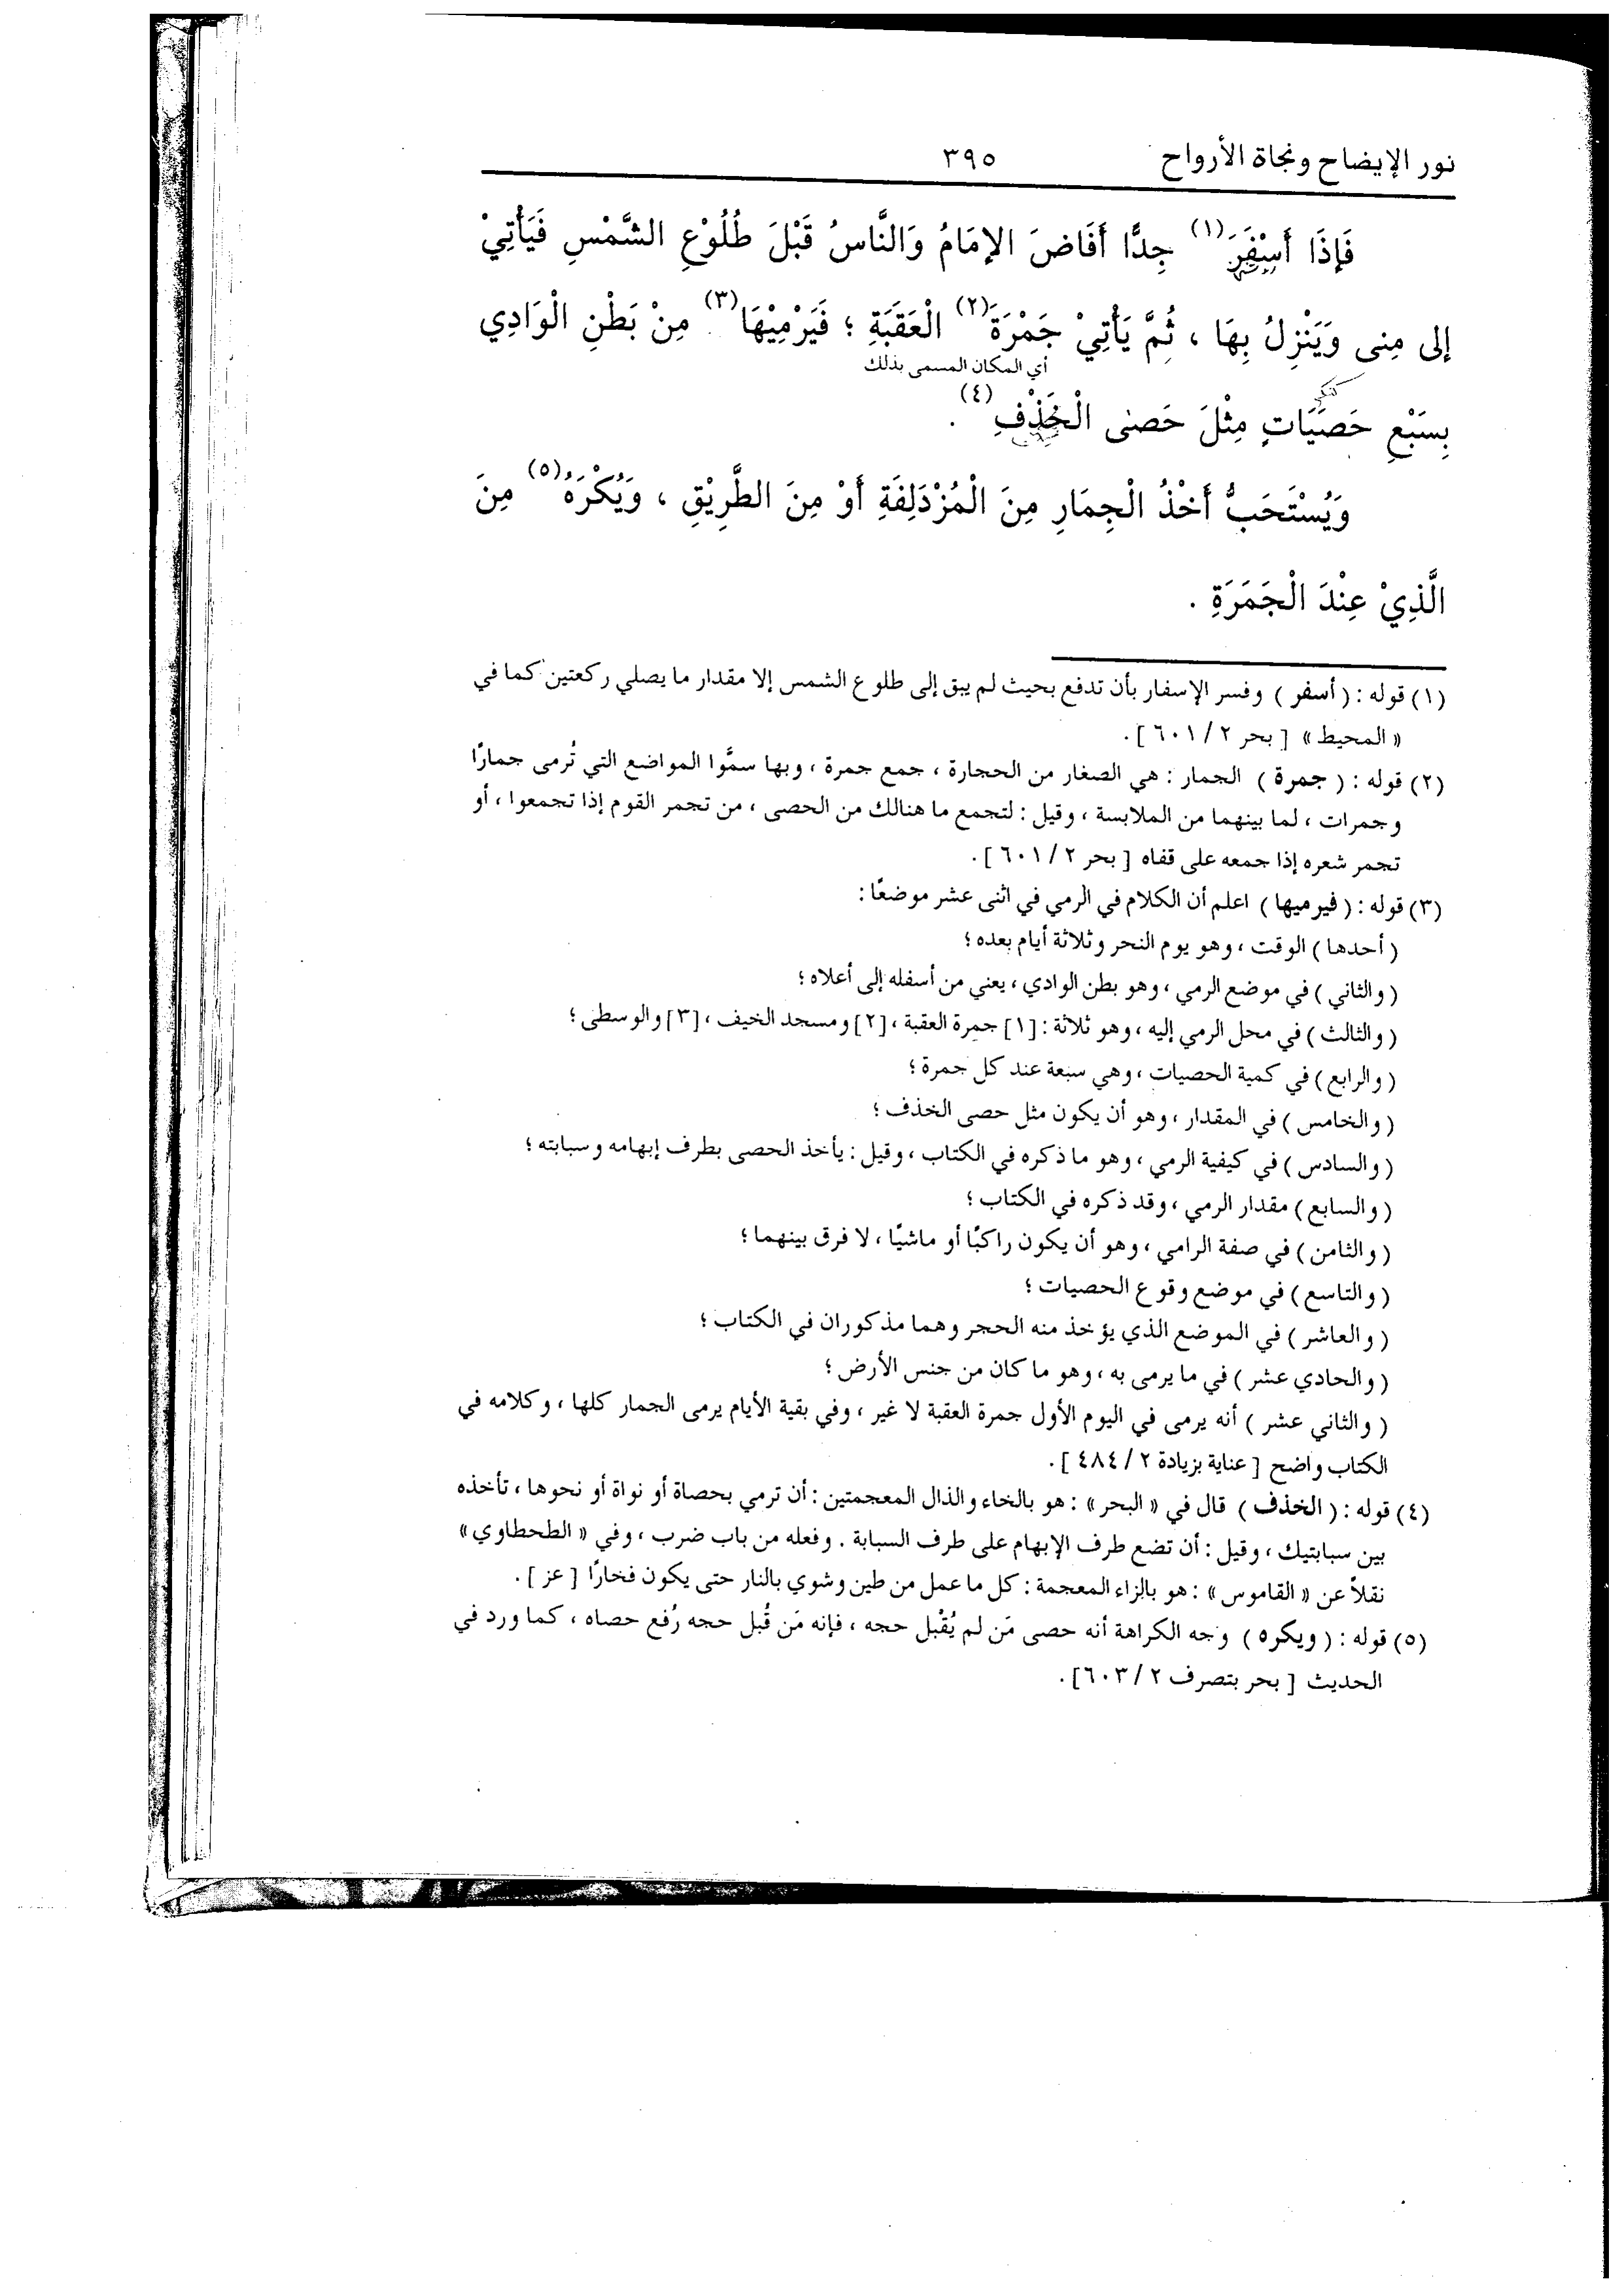 نور الإيضاح ونجاة الأرواح ٣٩٥
فَإِذَا أَسْفَرَ(١) جِدًّا أَفَاضَ الإِمَامُ وَالنَّاسُ قَبْلَ طُلُوْعِ الشَّمْسِ فَيَأْتِيْ
إلى مِنى وَيَنْزِلُ بِهَا ، ثُمَّ يَأْتِيْ جَمْرَةَ(٢) الْعَقَبَةِ ؛ فَيَرْمِيْهَا(٣) مِنْ بَطْنِ الْوَادِي
أي المكان المسمى بذلك
بِسَبْعِ حَصَيَاتٍ مِثْلَ حَصٰى الْخَذْفِ(٤) .
وَيُسْتَحَبُّ أَخْذُ الْجِمَارِ مِنَ الْمُزْدَلِفَةِ أَوْ مِنَ الطَّرِيْقِ ، وَيُكْرَهُ(٥) مِنَ
الَّذِيْ عِنْدَ الْجَمَرَةِ .
(١) قوله : ( أسفر ) وفسر الإسفار بأن تدفع بحيث لم يبق إلى طلوع الشمس إلا مقدار ما يصلي ركعتين كما في
« المحيط » [ بحر ٢ / ٦٠١ ] .
(٢) قوله : ( جمرة ) الجمار : هي الصغار من الحجارة ، جمع جمرة ، وبها سمَّوا المواضع التي تُرمى جمارًا
وجمرات ، لما بينهما من الملابسة ، وقيل : لتجمع ما هنالك من الحصى ، من تجمر القوم إذا تجمعوا ، أو
تجمر شعره إذا جمعه على قفاه [ بحر ٢ / ٦٠١ ] .
(٣) قوله : ( فيرميها ) اعلم أن الكلام في الرمي في اثنى عشر موضعًا :
( أحدها ) الوقت ، وهو يوم النحر وثلاثة أيام بعده ؛
( والثاني ) في موضع الرمي ، وهو بطن الوادي ، يعني من أسفله إلى أعلاه ؛
( والثالث ) في محل الرمي إليه ، وهو ثلاثة : [١] جمرة العقبة ، [٢] ومسجد الخيف ، [٣] والوسطى ؛
( والرابع ) في كمية الحصيات ، وهي سبعة عند كل جمرة ؛
( والخامس ) في المقدار ، وهو أن يكون مثل حصى الخذف ؛
( والسادس ) في كيفية الرمي ، وهو ما ذكره في الكتاب ، وقيل : يأخذ الحصى بطرف إبهامه وسبابته ؛
( والسابع ) مقدار الرمي ، وقد ذكره في الكتاب ؛
( والثامن ) في صفة الرامي ، وهو أن يكون راكبًا أو ماشيًا ، لا فرق بينهما ؛
( والتاسع ) في موضع وقوع الحصيات ؛
( والعاشر ) في الموضع الذي يؤخذ منه الحجر وهما مذكوران في الكتاب ؛
( والحادي عشر ) في ما يرمى به ، وهو ما كان من جنس الأرض ؛
( والثاني عشر ) أنه يرمى في اليوم الأول جمرة العقبة لا غير ، وفي بقية الأيام يرمى الجمار كلها ، وكلامه في
الكتاب واضح [ عناية بزيادة ٢ / ٤٨٤ ] .
(٤) قوله : ( الخذف ) قال في « البحر » : هو بالخاء والذال المعجمتين : أن ترمي بحصاة أو نواة أو نحوها ، تأخذه
بين سبابتيك ، وقيل : أن تضع طرف الإبهام على طرف السبابة . وفعله من باب ضرب ، وفي « الطحطاوي »
نقلاً عن « القاموس » : هو بالزاء المعجمة : كل ما عمل من طين وشوي بالنار حتى يكون فخارًا [ عز ] .
(٥) قوله : ( ويكره ) وجه الكراهة أنه حصى مَن لم يُقْبل حجه ، فإنه مَن قُبل حجه رُفع حصاه ، كما ورد في
الحديث [ بحر بتصرف ٢ / ٦٠٣ ] .